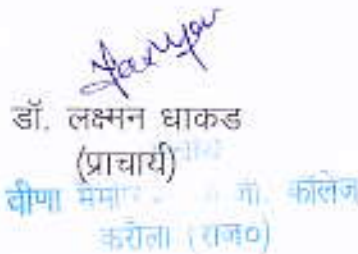 डॉ. लक्ष्मन धाकड
(प्राचार्य)
वीणा कॉलेज
करौली (राज०)